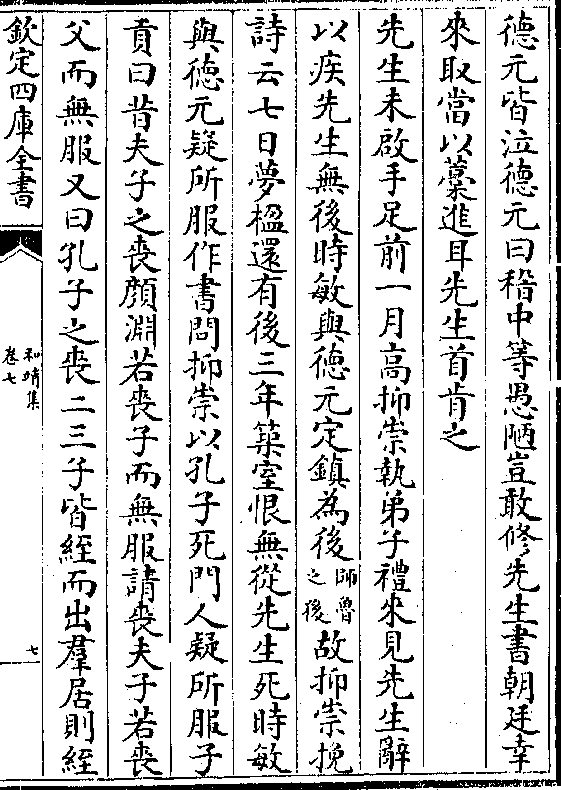 德元皆泣德元曰稽中等愚陋豈敢修先生書朝廷幸
來取當以藁進耳先生首肯之
先生未啟手足前一月高抑崇執弟子禮來見先生辭
以疾先生無後時敏與德元定鎮為後師魯之後故抑崇挽
詩云七日夢楹還有後三年築室恨無從先生死時敏
與德元疑所服作書問抑崇以孔子死門人疑所服子
貢曰昔夫子之喪顔淵若喪子而無服請喪夫子若喪
父而無服又曰孔子之喪二三子皆絰而出羣居則絰
欽定四庫全書
和靖集
卷七
七